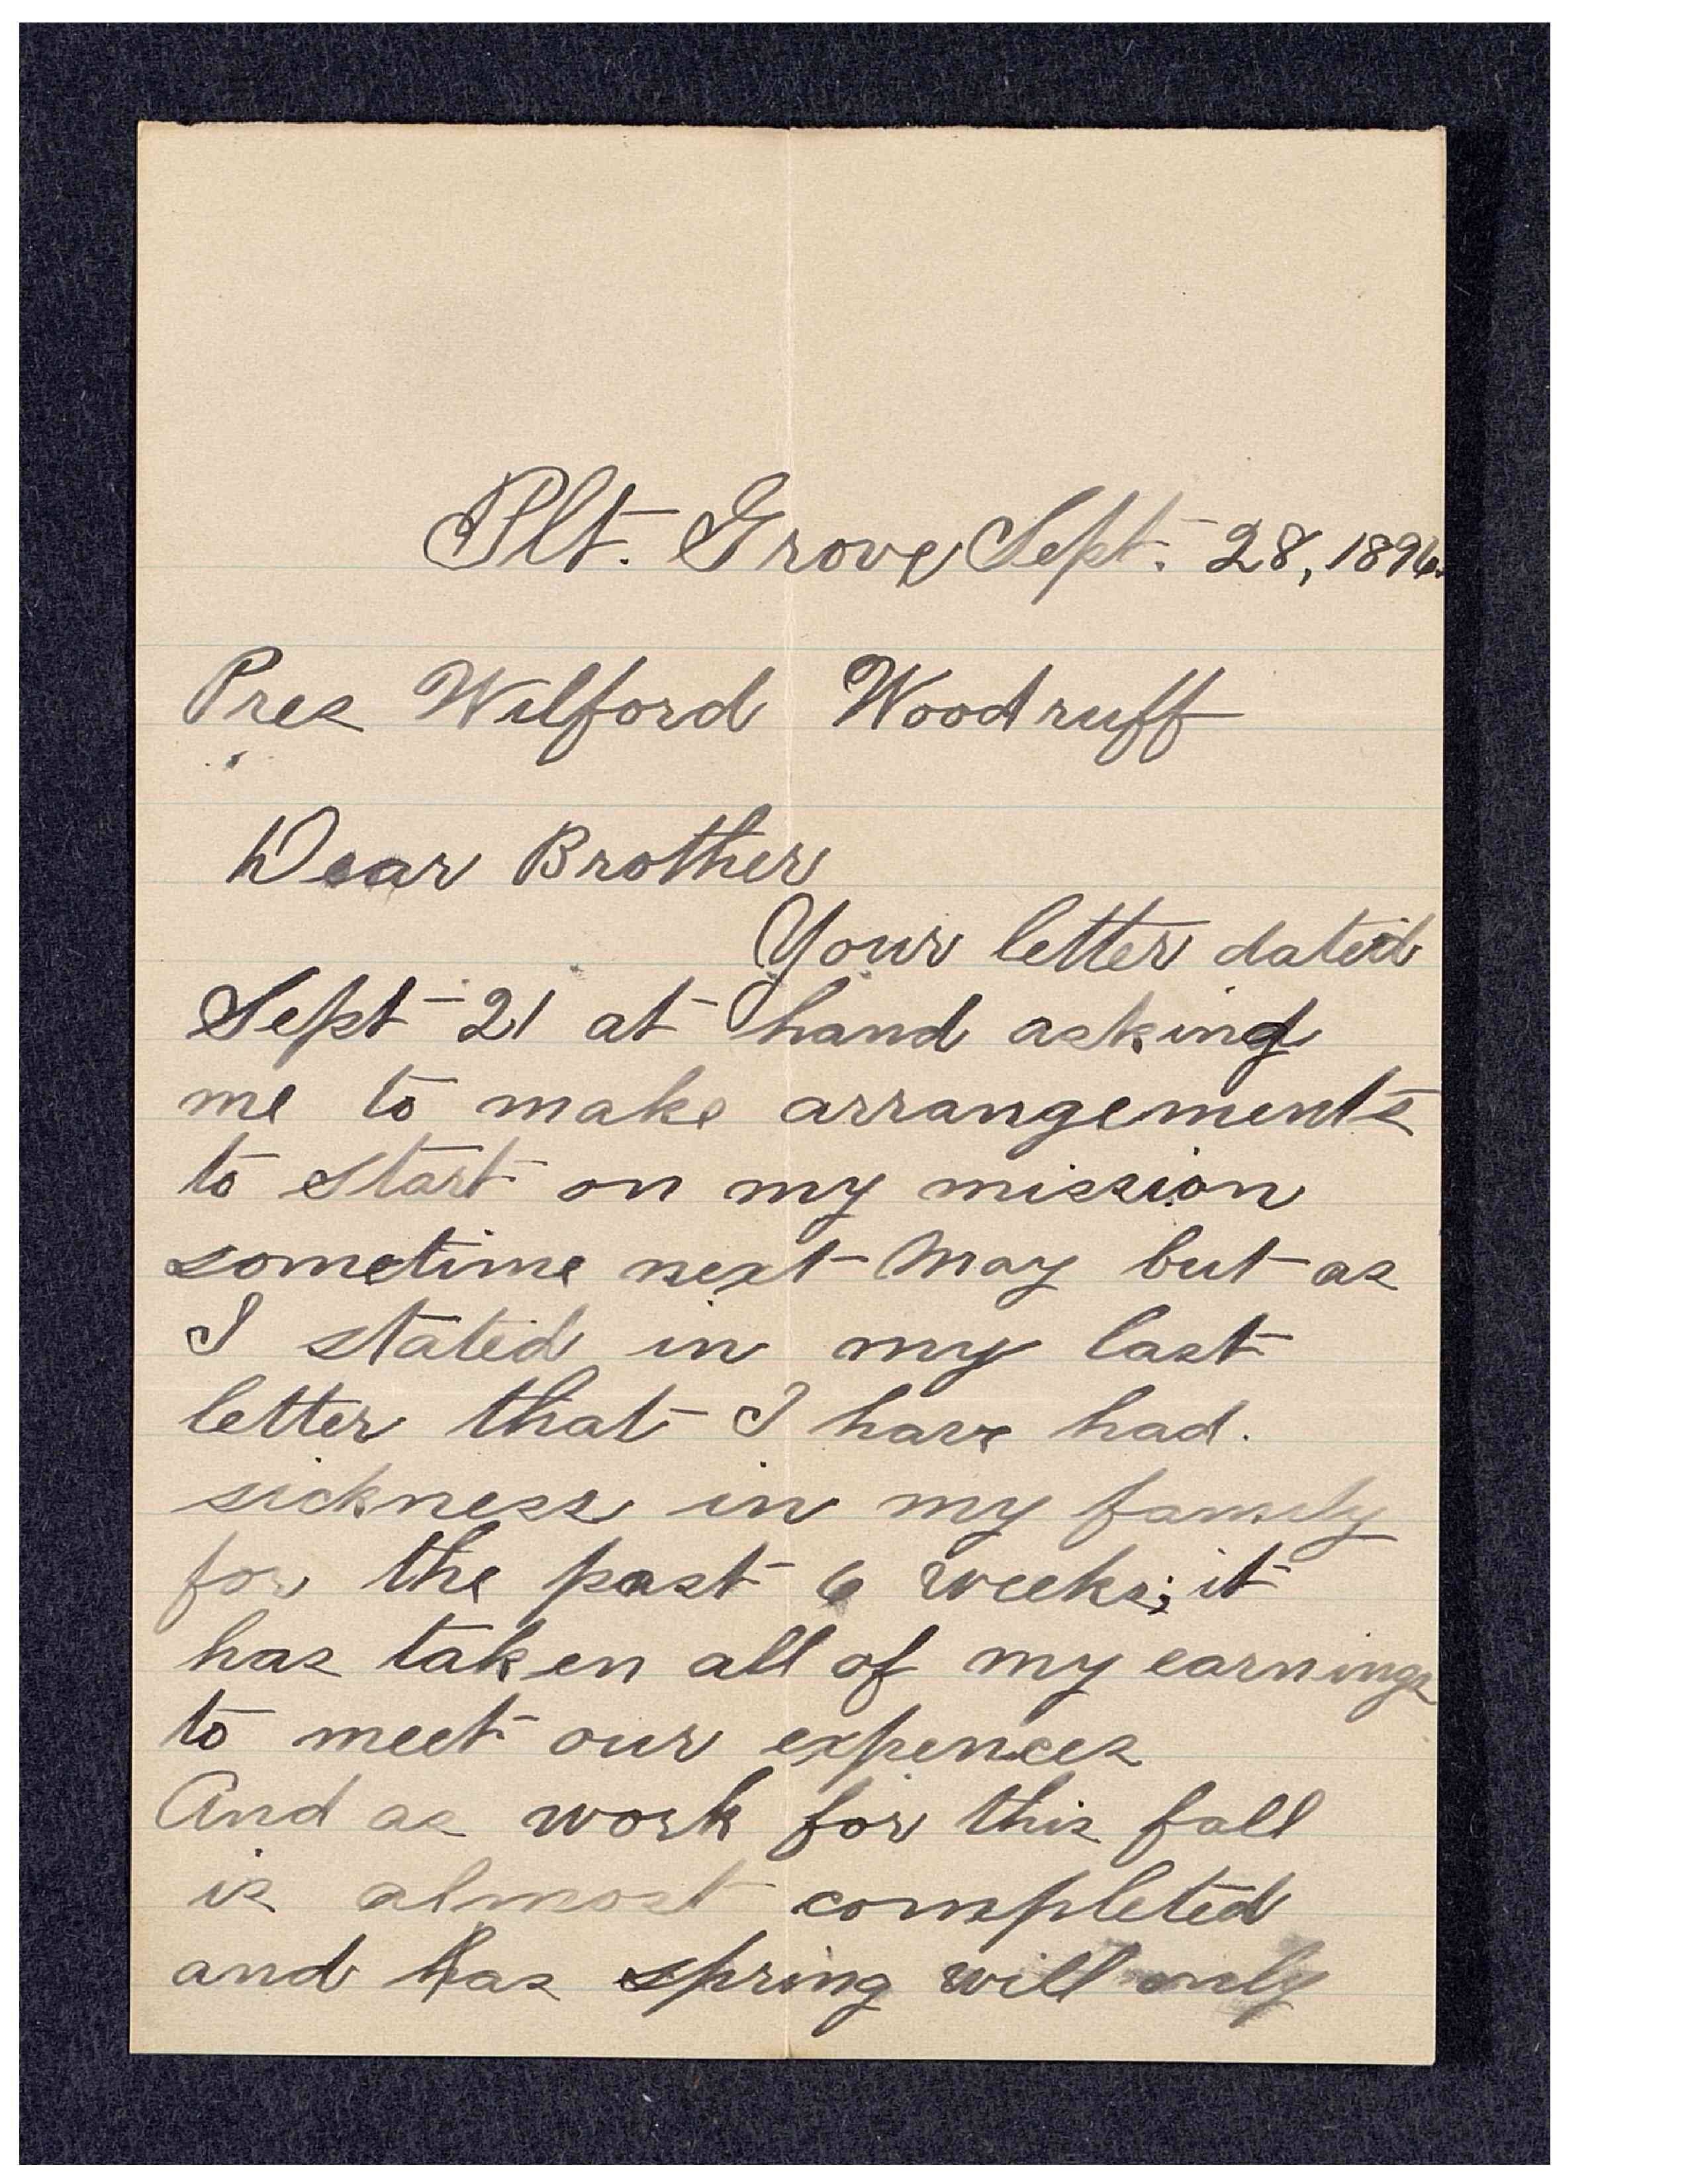 Plt. Grove Sept. 28, 1896.
Pres Wilford Woodruff
Dear Brother
Your letter dated
Sept 21 at hand asking
me to make arrangements
to start on my mission
sometime next May but as
I stated in my last
letter that I have had.
sickness in my family
for the past 6 weeks; it
has taken all of my earnings
to meet our expences
And as work for this fall
is almost completed
and has spring will only